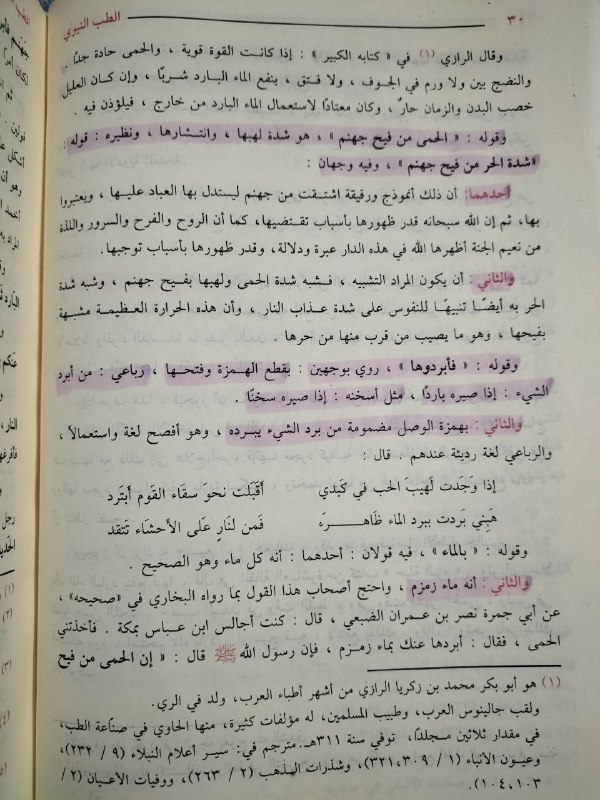 ٣٠ الطب النبوي
وقال الرازي (١) في « كتابه الكبير » : إذا كانت القوة قوية ، والحمى حادة جدًا .
والنضج بين ولا ورم في الجوف ، ولا فتق ، ينفع الماء البارد شربًا ، وإن كان العليل
خصب البدن والزمان حارٌ ، وكان معتادًا لاستعمال الماء البارد من خارج ، فيلؤذن فيه .
وقوله : « الحمى من فيح جهنم » ، هو شدة لهبها ، وانتشارها ، ونظيره : قوله :
«شدة الحر من فيح جهنم» ، وفيه وجهان :
أحدهما: أن ذلك أنموذج ورقيقة اشتقت من جهنم ليستدل بها العباد عليها ، ويعتبروا
بها، ثم إن الله سبحانه قدر ظهورها بأسباب تقتضيها، كما أن الروح والفرح والسرور واللذة
من نعيم الجنة أظهرها الله في هذه الدار عبرة ودلالة، وقدر ظهورها بأسباب توجبها.
والثاني : أن يكون المراد التشبيه ، فشبه شدة الحمى ولهبها بفيح جهنم ، وشبه شدة
الحر به أيضًا تنبيهًا للنفوس على شدة عذاب النار ، وأن هذه الحرارة العظيمة مشبهة
بفيحها ، وهو ما يصيب من قرب منها من حرها .
وقوله : « فأبردوها » ، روي بوجهين : بقطع الهمزة وفتحها ، رباعي : من أبرد
الشيء : إذا صيره باردًا ، مثل أسخنه : إذا صيره سخنًا .
والثاني : بهمزة الوصل مضمومة من برد الشيء يبرده ، وهو أفصح لغة واستعمالاً ،
والرباعي لغة رديئة عندهم . قال :
إذا وَجَدت لَهيبَ الحب في كَبدي أقبَلت نحوَ سقاء القَوم أبتَرد
هَبني بَردت ببرد الماء ظَاهرَه فَمن لنارٍ عَلى الأحشَاء تَتقد
وقوله : «بالماء» ، فيه قولان : أحدهما : أنه كل ماء وهو الصحيح .
والثاني : أنه ماء زمزم ، واحتج أصحاب هذا القول بما رواه البخاري في «صحيحه» ،
عن أبي جمرة نصر بن عمران الضبعي ، قال : كنت أجالس ابن عباس بمكة . فأخذتني
الحمى ، فقال : أبردها عنك بماء زمزم ، فإن رسول الله ﷺ قال : « إن الحمى من فيح
(١) هو أبو بكر محمد بن زكريا الرازي من أشهر أطباء العرب، ولد في الري.
ولقب جالينوس العرب، وطبيب المسلمين، له مؤلفات كثيرة، منها الحاوي في صناعة الطب،
في مقدار ثلاثين مجلدًا، توفي سنة ٣١١هـ.مترجم في: سير أعلام النبلاء (٩ / ٢٣٢)،
وعيون الأنباء (١ / ٣٠٩،٣٢١)، وشذرات الذهب (٢ / ٢٦٣)، ووفيات الأعيان (٢ /
١٠٣،١٠٤).